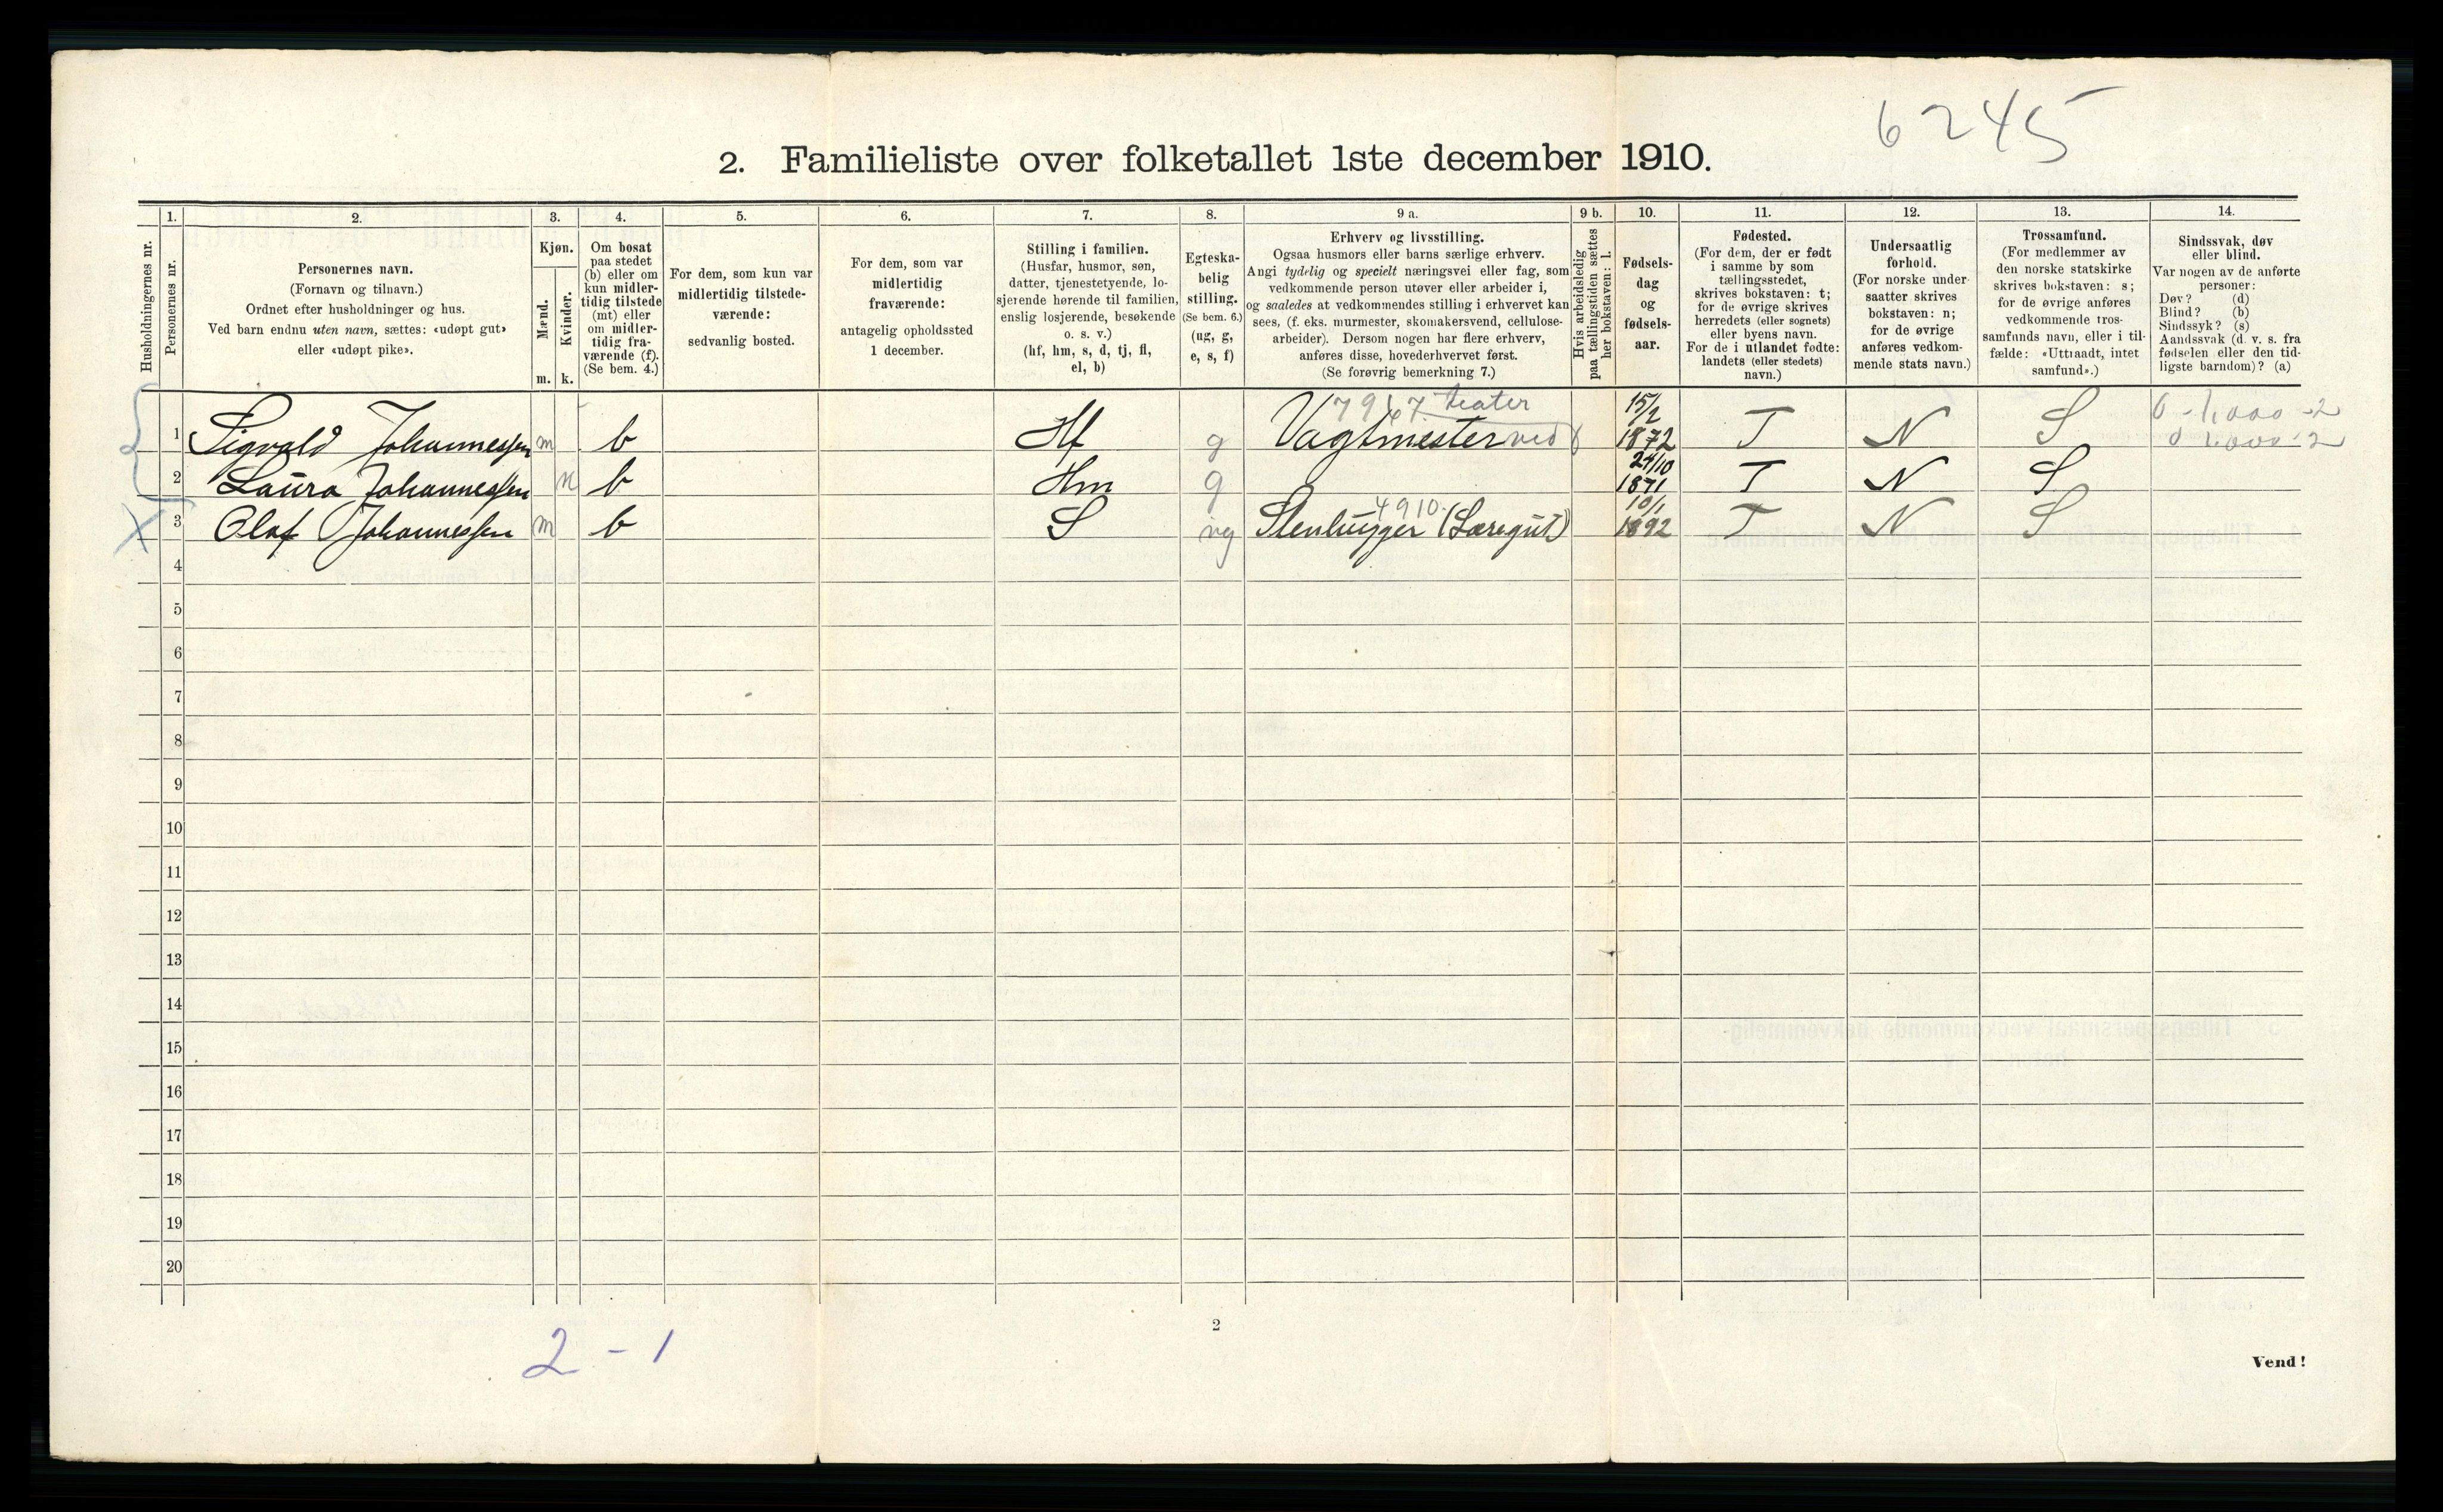 6245
2. Familieliste over folketallet 1ste december 1910.
Husholdningernes nr.
1.
Personernes nr.
2.
Personernes navn.
(Fornavn og tilnavn.)
Ordnet efter husholdninger og hus.
Ved barn endnu uten navn, sættes: «udøpt gut»
eller «udøpt pike».
3.
Kjøn.
Mænd.
m.
Kvinder.
k.
4.
Om bosat
paa stedet
(b) eller om
kun midler-
tidig tilstede
(mt) eller
om midler-
tidig fra-
værende (f).
(Se bem. 4.)
5.
For dem, som kun var
midlertidig tilstede-
værende:
sedvanlig bosted.
6.
For dem, som var
midlertidig
fraværende:
antagelig opholdssted
1 december.
7.
Stilling i familien.
(Husfar, husmor, søn,
datter, tjenestetyende, lo-
sjerende hørende til familien,
enslig losjerende, besøkende
o. s. v.)
(hf, hm, s, d, tj, fl,
el, b)
8.
Egteska-
belig
stilling.
(Se bem. 6.)
(ug, g,
e, s, f)
9 a.
Erhverv og livsstilling.
Ogsaa husmors eller barns særlige erhverv.
Angi tydelig og specielt næringsvei eller fag, som
vedkommende person utøver eller arbeider i,
og saaledes at vedkommendes stilling i erhvervet kan
sees, (f. eks. murmester, skomakersvend, cellulose-
arbeider). Dersom nogen har flere erhverv,
anføres disse, hovederhvervet først.
(Se forøvrig bemerkning 7.)
9 b.
Hvis arbeidsledig
paa tællingstiden sættes
her bokstaven: l.
10.
Fødsels-
dag
og
fødsels-
aar.
11.
Fødested.
(For dem, der er født
i samme by som
tællingsstedet,
skrives bokstaven: t;
for de øvrige skrives
herredets (eller sognets)
eller byens navn.
For de i utlandet fødte:
landets (eller stedets)
navn.)
12.
Undersaatlig
forhold.
(For norske under-
saatter skrives
bokstaven: n;
for de øvrige
anføres vedkom-
mende stats navn.)
13.
Trossamfund.
(For medlemmer av
den norske statskirke
skrives bokstaven: s;
for de øvrige anføres
vedkommende tros-
samfunds navn, eller i til-
fælde: «Uttraadt, intet
samfund».)
14.
Sindssvak, døv
eller blind.
Var nogen av de anførte
personer:
Døv? (d)
Blind? (b)
Sindssyk? (s)
Aandssvak (d. v. s. fra
fødselen eller den tid-
ligste barndom)? (a)
7967 teater 15/2 0-1,000-2
1 Sigvald Johannessen m b Hf g Vagtmester ved 1872 T N S 0 1.000-2
24/10
2 Laura Johannessen k b Hm g 1871 T N S
4910. 10/1
X 3 Olaf Johannessen m b S ug Stenhugger (Læregut) 1892 T N S
4
5
6
7
8
9
10
11
12
13
14
15
16
17
18
19
20
2
2 - 1
Vend!